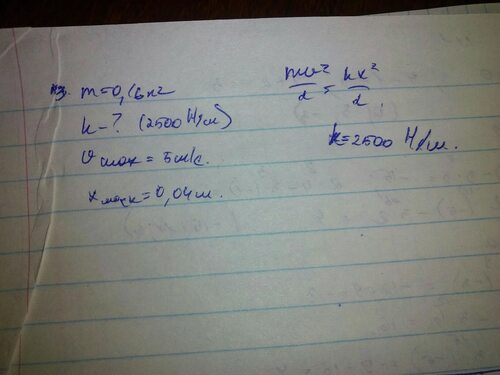 №3. m=0,16кг
k-? (2500 Н/м)
υmax = 5м/с.
xmax=0,04м.
mυ²/2 = kx²/2
k=2500 Н/м.